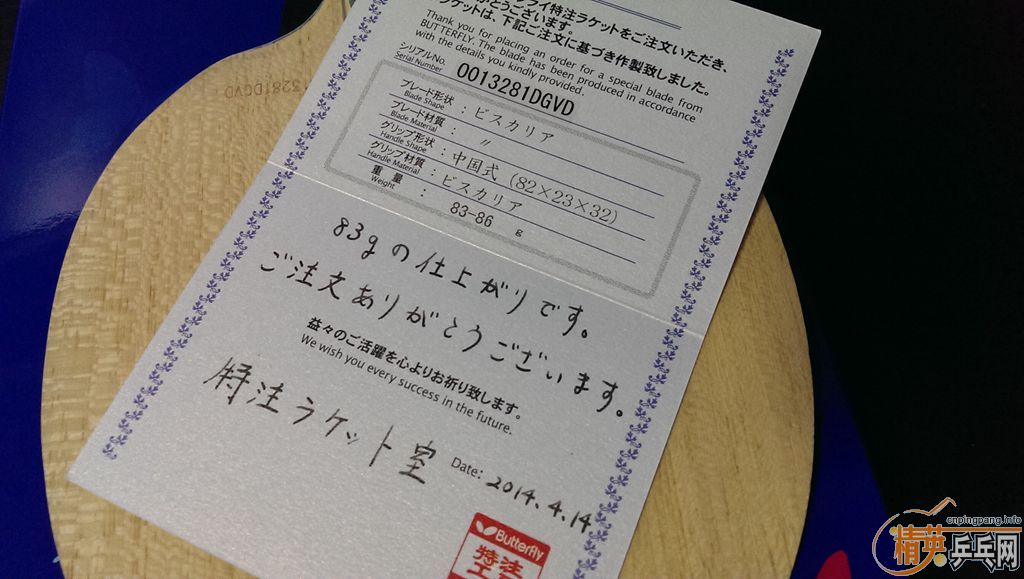 ライ特注ラケットをご注文いただき、
がとうございます。
ラケットは、下記ご注文に基づき作製致しました。
Thank you for placing an order for a special blade from
BUTTERFLY. The blade has been produced in accordance
with the details you kindly provided.
シリアルNo.
Serial Number
0013281DGVD
ブレード形状
Blade Shape
：ビスカリア
ブレード材質
Blade Material
：〃
グリップ形状
Handle Shape
：中国式（82×23×32）
グリップ材質
Handle Material
：ビスカリア
重量
Weight
：83-86 g
83gの仕上がりです。
ご注文ありがとうございます。
益々のご活躍を心よりお祈り致します。
We wish you every success in the future.
特注ラケット室
Date: 2014.4.14
Butterfly
特注
工
13281DGVD
cnpingpang.info
精英乒乓网